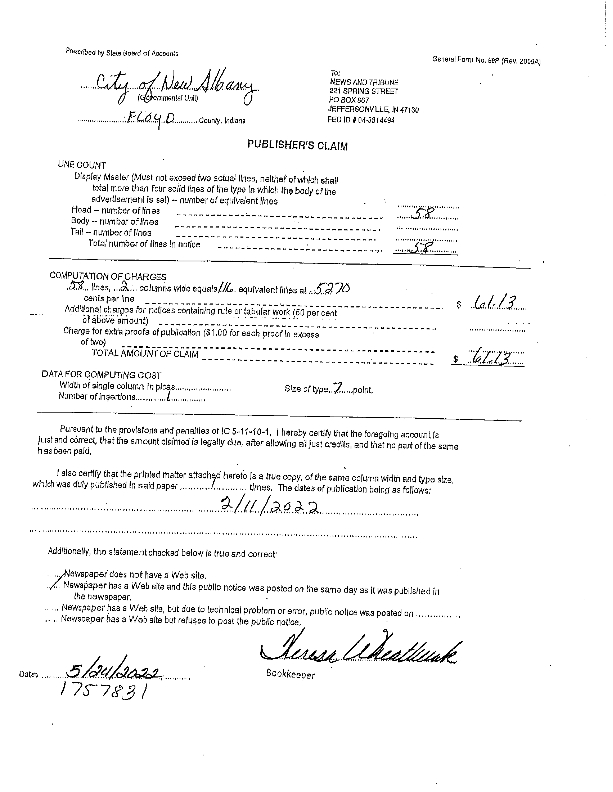 Prescribed by State Board of Accounts
General Form No. 99P (Rev. 2009A)
City of New Albany
(Governmental Unit)
FLOYD County, Indiana
To:
NEWS AND TRIBUNE
221 SPRING STREET
PO BOX 867
JEFFERSONVILLE, IN 47130
FED ID #
PUBLISHER'S CLAIM
LINE COUNT
Display Master (Must not exceed two actual lines, neither of which shall
total more than four solid lines of the type in which the body of the
advertisement is set) -- number of equivalent lines
Head -- number of lines 58
Body -- number of lines
Tail -- number of lines
Total number of lines in notice 58
COMPUTATION OF CHARGES
58 lines, 2 columns wide equals 116 equivalent lines at .5270
cents per line $ 61.13
Additional charges for notices containing rule or tabular work (50 per cent
of above amount)
Charge for extra proofs of publication ($1.00 for each proof in excess
of two)
TOTAL AMOUNT OF CLAIM $ 61.13
DATA FOR COMPUTING COST
Width of single column in picas
Size of type 7 point.
Number of insertions 1
Pursuant to the provisions and penalties of IC 5-11-10-1, I hereby certify that the foregoing account is
just and correct, that the amount claimed is legally due, after allowing all just credits, and that no part of the same
has been paid.
I also certify that the printed matter attached hereto is a true copy, of the same column width and type size,
which was duly published in said paper 1 times. The dates of publication being as follows:
2/11/2022
Additionally, the statement checked below is true and correct:
Newspaper does not have a Web site.
Newspaper has a Web site and this public notice was posted on the same day as it was published in
the newspaper.
Newspaper has a Web site, but due to technical problem or error, public notice was posted on
Newspaper has a Web site but refuses to post the public notice.
Date: 5/24/2022
Bookkeeper
1757831